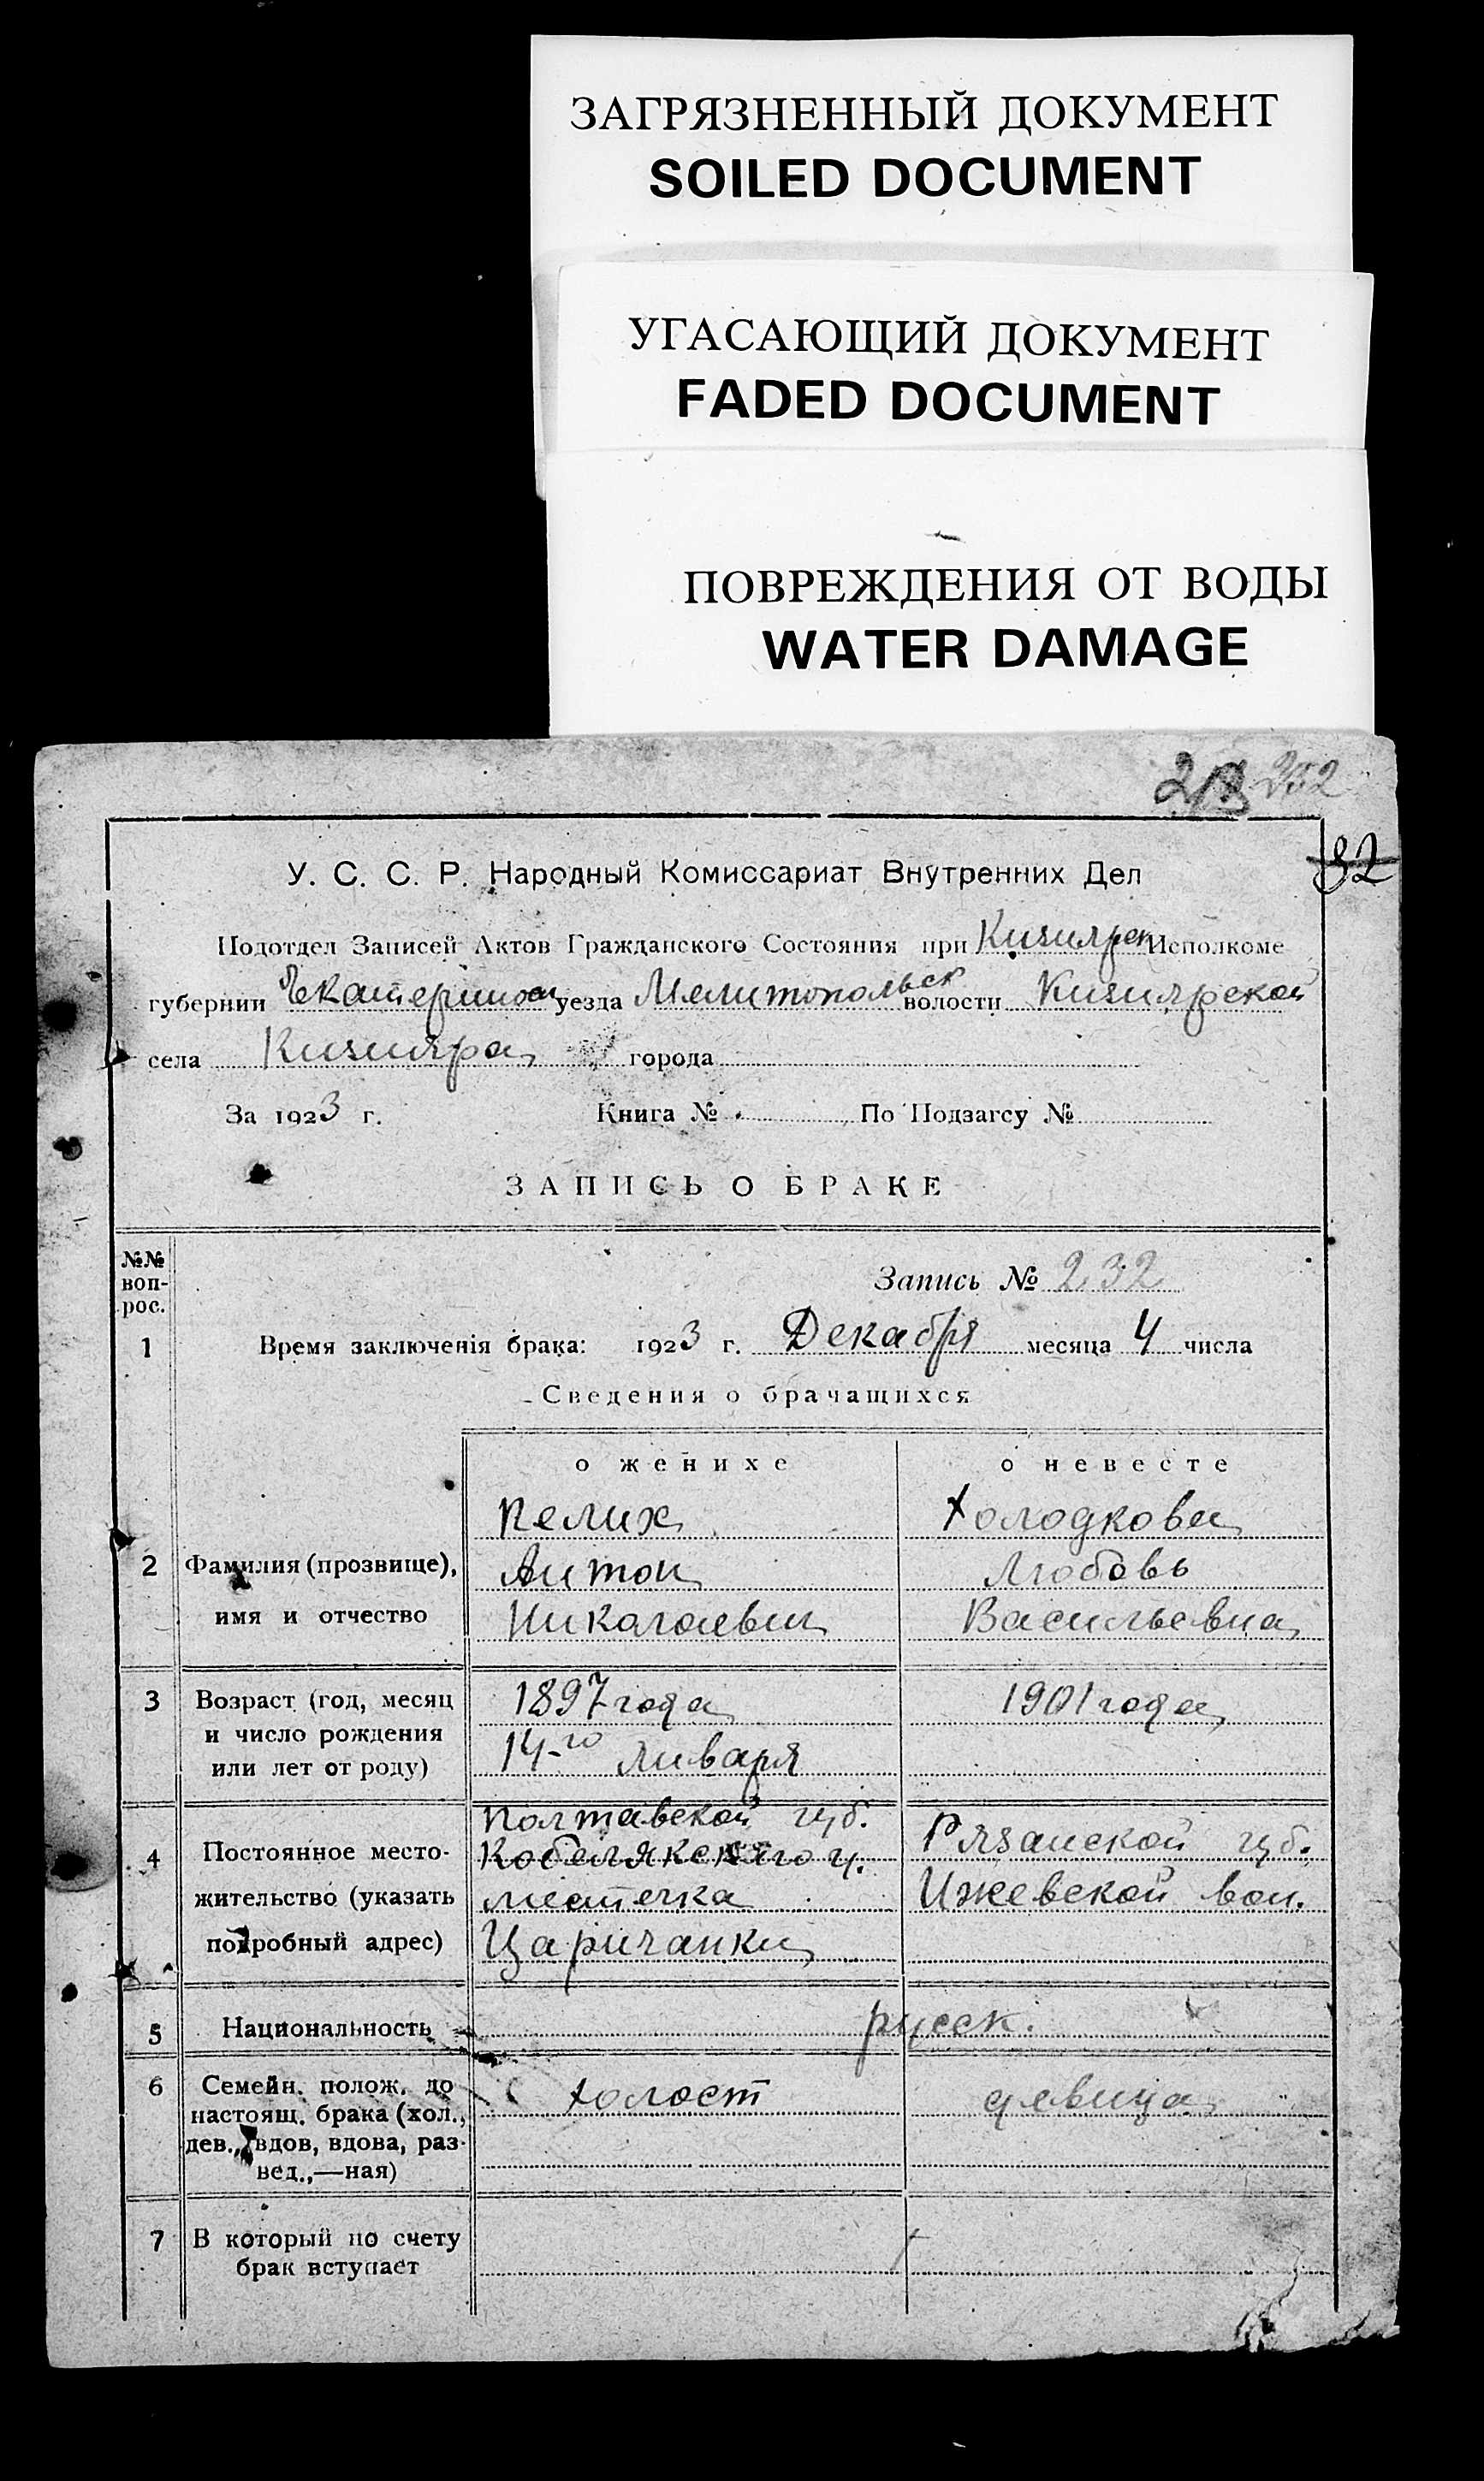 ЗАГРЯЗНЕННЫЙ ДОКУМЕНТ
SOILED DOCUMENT
УГАСАЮЩИЙ ДОКУМЕНТ
FADED DOCUMENT
ПОВРЕЖДЕНИЯ ОТ ВОДЫ
WATER DAMAGE
232
У. С. С. Р. Народный Комиссариат Внутренних Дел
Подотдел Записей Актов Гражданского Состояния при Кизиярск Исполкоме
губернии Екатеринос уезда Мелитопольск волости Кизиярской
села Кизияра города
За 1923 г. Книга № По Подзагсу №
ЗАПИСЬ О БРАКЕ
№№ воп-рос.
Запись № 232
1 Время заключенія брака: 1923 г. Декабря месяца 4 числа
Сведения о брачащихся
о женихе о невесте
Пелих Холодкова
2 Фамилия (прозвище), Антон Любовь
имя и отчество Николаевич Васильевна
3 Возраст (год, месяц 1897 года 1901 года
и число рождения
или лет от роду) 14-го Января
Полтавской губ.
4 Постоянное место- Кобелякского у. Рязанской губ.
жительство (указать местечка Ижевской вол.
подробный адрес) Царичанки
5 Национальность русск.
6 Семейн. полож. до холост девица
настоящ. брака (хол.,
дев., вдов, вдова, раз-
вед.,—ная)
7 В который по счету
брак вступает